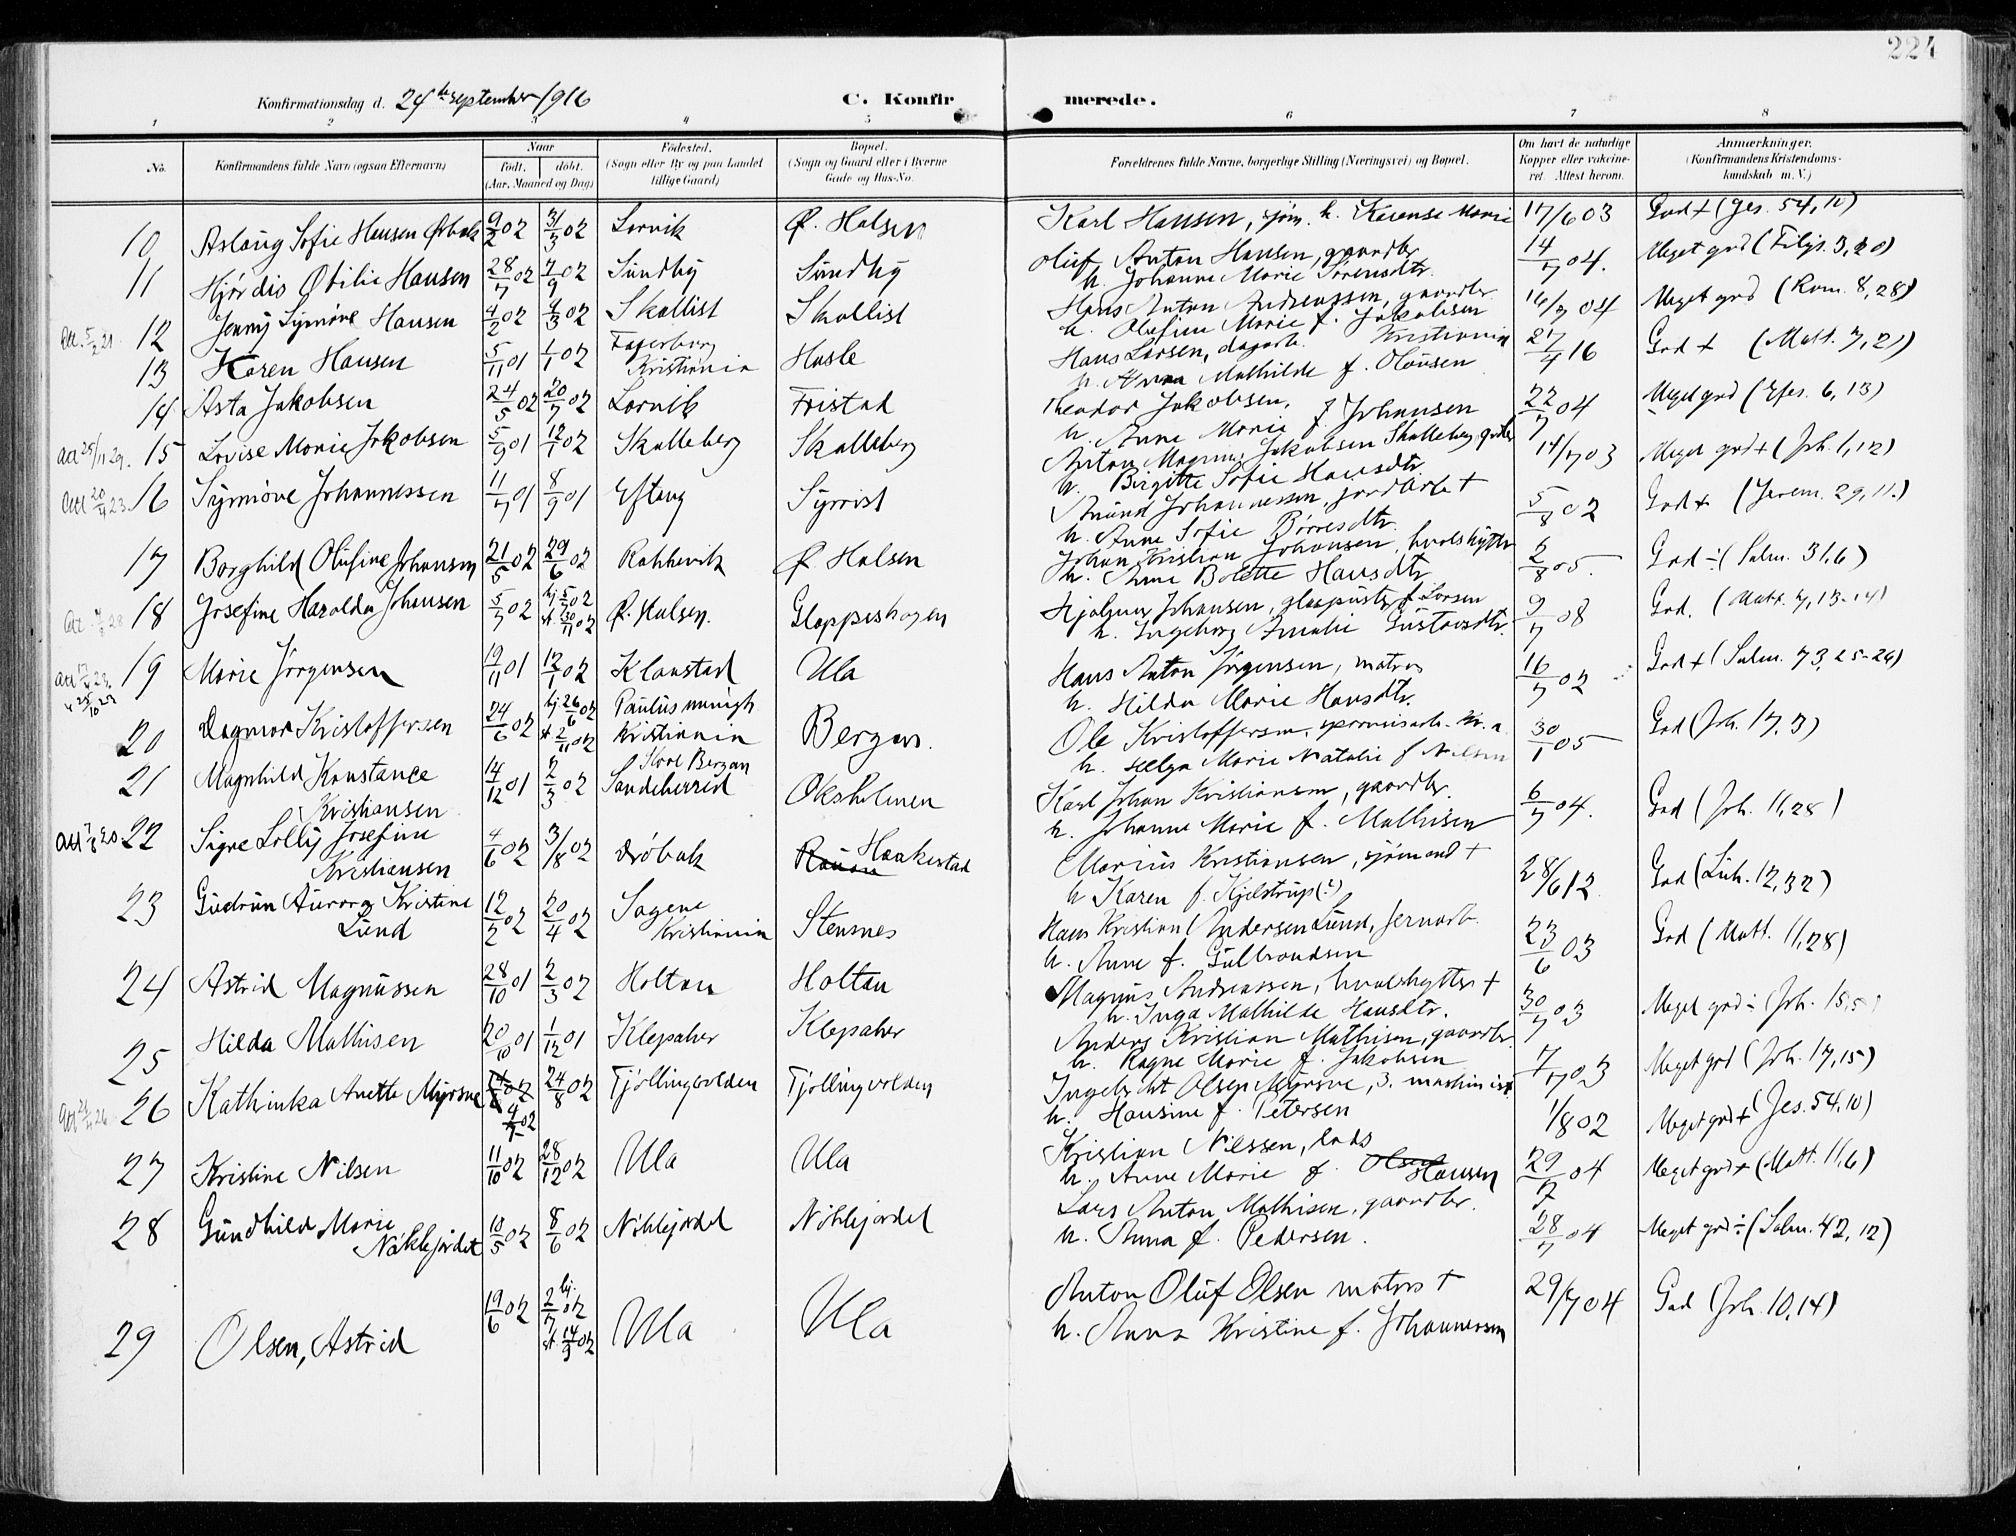 224
Konfirmationsdag d. 24de september 1916
C. Konfirmerede.
1 2 3 4 5 6 7 8
No. Konfirmandens fulde Navn (ogsaa Efternavn) Naar Født. døbt. (Aar, Maaned og Dag) Fødested. (Sogn eller By og paa Landet tillige Gaard) Bopæl. (Sogn og Gaard eller i Byerne Gade og Hus-No. Forældrenes fulde Navne, borgerlige Stilling (Næringsvei) og Bopæl. Om havt de naturlige Kopper eller vaksineret. Attest herom. Anmerkninger. (Konfirmandens Kristendomskundskab m. V.)
10 Aslaug Sofie Hansen Ørbak 9/2 02 31/3 02 Larvik Ø. Halsen Karl Hansen, sjøm. h. Karense Marie 17/6 03 God + (Jes. 54,10)
11 Hjørdis Otilie Hansen 28/7 02 7/9 02 Sundby Sundby Oluf Anton Hansen, gaardbr. 14/7 04. Meget god (Filip. 3,20)
h. Johanne Marie Sørensdtr.
12 Jenny Synnøve Hansen 4/2 02 9/3 02 Skallist Skallist Hans Anton Andreassen, gaardbr. 16/7 04 Meget god (Rom. 8,28)
h. Olufine Marie f. Jakobsen
13 Karen Hansen 5/11 01 1/1 02 Fagerborg Kristiania Hasle Hans Larsen, dagarb. Kristiania 27/4 16 God + (Matt. 7,21)
h. Anna Mathilde f. Olausen
14 Asta Jakobsen 24/5 02 20/7 02 Larvik Fristad Theodor Jakobsen, 22/7 04 Meget god (Efes. 6,13)
h. Anne Marie f. Johansen
Att 25/11 29. 15 Lovise Marie Jakobsen 5/9 01 12/1 02 Skalleberg Skalleberg Anton Magnus Jakobsen Skalleberg, grbr 14/7 03 Meget god + (Joh. 1,12)
h. Birgitte Sofie Hansdtr
Att 20/4 23. 16 Synnøve Johannessen 11/7 01 8/9 01 Eftang Syrrist Amund Johannessen, jordarb. + 5/8 02 God + (Jerem. 29,11.)
h. Anne Sofie Børresdtr.
17 Borghild Olufine Johansen 21/5 02 29/6 02 Rakkevik Ø. Halsen Johan Kristian Johansen, hvalskytter 6/8 05. God ÷ (Salm. 31,6)
h. Anne Bolette Hansdtr
18 Josefine Haralda Johansen 5/7 02 hj. 5/7 02 st. 30/11 02 Ø. Halsen. Gloppeshagen Hjalmar Johansen, glaspuster f. Larsen 9/7 08 God. (Matt. 7,13-14)
h. Ingeborg Amalie Gustavsdtr.
19 Marie Jørgensen 19/11 01 12/1 02 Klaastad Ula Hans Anton Jørgensen, matros 16/7 02 God + (Salm. 73,25-26)
h. Hilda Marie Hansdtr.
20 Dagmar Kristoffersen 24/6 02 hj. 26/6 02 st 2/11 02 Paulus menigh. Kristiania Bergan. Ole Kristoffersen, sporveisarb. Kr.a 30/1 05 God (Joh. 17,3)
h. Helga Marie Natalie f Nilsen
21 Magnhild Konstance 14/12 01 2/3 02 Store Bergan Sandeherred Oksholmen Karl Johan Kristiansen, gaardbr. 6/7 04. God (Joh. 11,28)
Kristiansen h. Johanne Marie f. Mathisen
22 Signe Lolly Josefine 4/6 02 3/8 02 Drøbak Hankestad Marius Kristiansen, sjømand + 28/6 12 God (Luk. 12,32)
Kristiansen h Karen f. Kjelstrup(?)
23 Gudrun Aurora Kristine 12/2 02 20/4 02 Sagene Kristiania Stensnes Hans Kristian Andersen Lund, jernarb. 23/6 03 God (Matt. 11,28)
Lund h. Anne f. Gulbrandsen
24 Astrid Magnussen 28/10 01 2/3 02 Holtan Holtan Magnus Andreassen, hvalskytter + 30/7 03 Meget god ÷ (Joh. 15,5)
h. Inga Mathilde Hansdtr.
25 Hilda Mathisen 20/10 01 1/12 01 Klepaker Klepaker Anders Kristian Mathisen, gaardbr. 7/7 03 Meget god (Joh. 17,15)
h. Ragne Marie f. Jakobsen
26 Kathinka Anette Myrsve 4/7 02 24/8 02 Tjøllingvolden Tjøllingvolden Ingebrekt Olsen Myrsve, 3. maskinist 1/8 02 Meget god + (Jes. 54,10)
h. Hansine f. Petersen
27 Kristine Nilsen 11/10 02 28/12 02 Ula Ula Kristian Nilssen, lods 29/7 04 Meget god + (Matt. 11,6)
h. Anne Marie f. Olsen Hansen
28 Gundhild Marie 10/5 02 8/6 02 Nøklejordet Nøklejordet Lars Anton Mathisen, gaardbr. 28/7 04 Meget god ÷ (Salm. 42,12)
Nøklejordet h. Anna f. Pedersen.
29 Olsen, Astrid 19/6 02 hj. 2/7 02 st 14/3 03 Ula Ula Anton Oluf Olsen matros + 29/7 04 God (Joh. 10,14)
h. Anna Kristine f. Johannessen